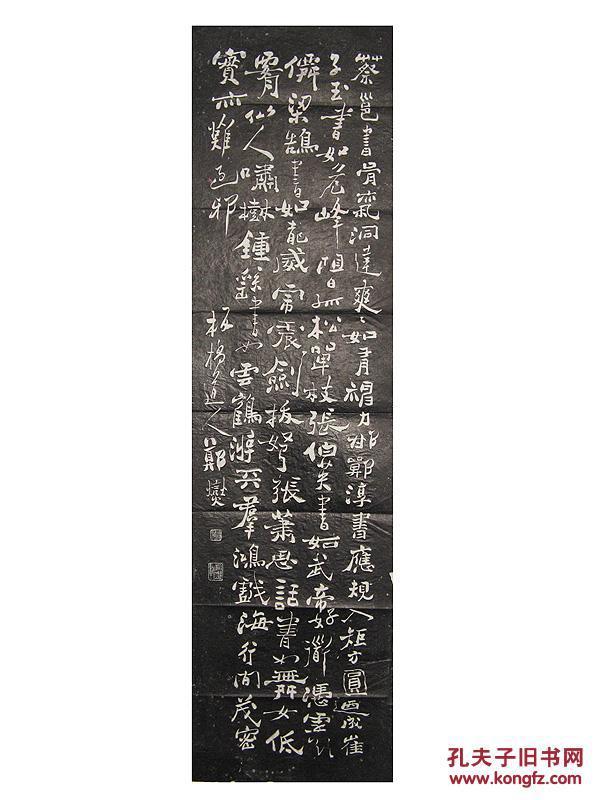 蔡邕書骨氣洞達爽爽如有神力邯鄲淳書應規入矩方圓迺成崔
子玉書如危峰阻日孤松單枝張伯英書如武帝好道憑虛欲
僊梁鵠書如龍威虎震劍拔弩張蕭思話書如舞女低
腰仙人嘯樹鍾繇書如雲鶴游天羣鴻戲海行間茂密
實亦難過耶
板橋道人鄭燮
孔夫子旧书网
www.kongfz.com